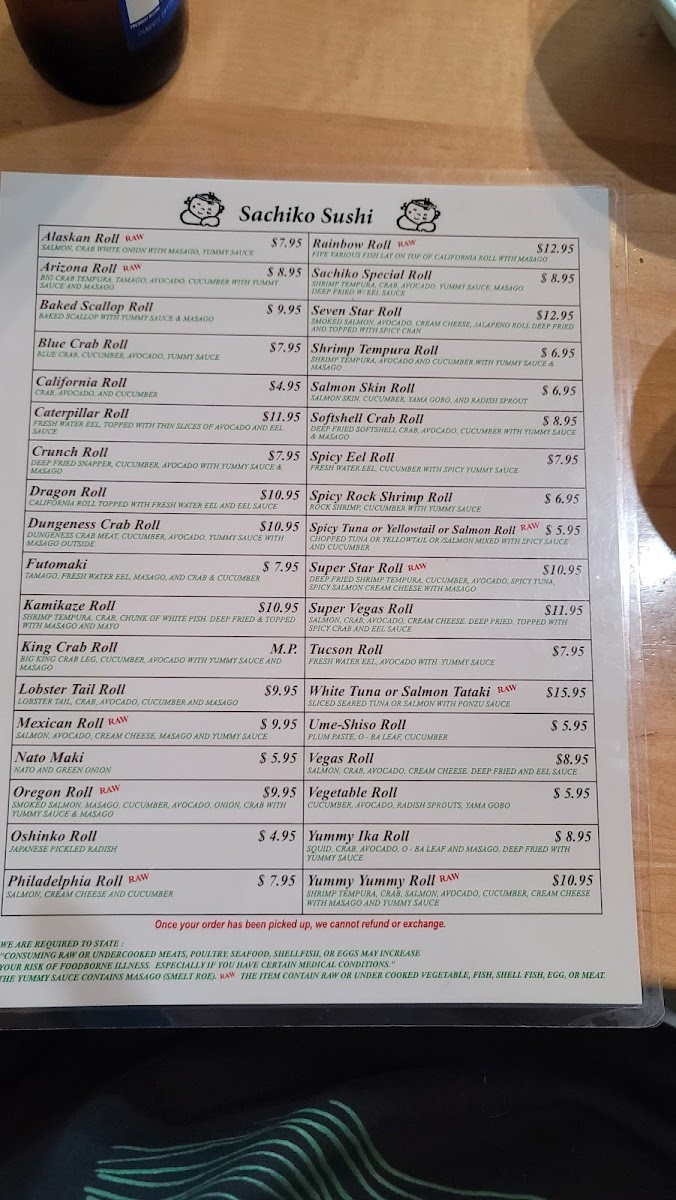 Sachiko Sushi
Alaskan Roll RAW $7.95
SALMON, CRAB WHITE ONION WITH MASAGO, YUMMY SAUCE
Arizona Roll RAW $ 8.95
BIG CRAB TEMPURA, TAMAGO, AVOCADO, CUCUMBER WITH YUMMY
SAUCE AND MASAGO
Baked Scallop Roll $ 9.95
BAKED SCALLOP WITH YUMMY SAUCE & MASAGO
Blue Crab Roll $7.95
BLUE CRAB, CUCUMBER, AVOCADO, YUMMY SAUCE
California Roll $4.95
CRAB, AVOCADO, AND CUCUMBER
Caterpillar Roll $11.95
FRESH WATER EEL, TOPPED WITH THIN SLICES OF AVOCADO AND EEL
SAUCE
Crunch Roll $7.95
DEEP FRIED SNAPPER, CUCUMBER, AVOCADO WITH YUMMY SAUCE &
MASAGO
Dragon Roll $10.95
CALIFORNIA ROLL TOPPED WITH FRESH WATER EEL AND EEL SAUCE
Dungeness Crab Roll $10.95
DUNGENESS CRAB MEAT, CUCUMBER, AVOCADO, YUMMY SAUCE WITH
MASAGO OUTSIDE
Futomaki $ 7.95
TAMAGO, FRESH WATER EEL, MASAGO, AND CRAB & CUCUMBER
Kamikaze Roll $10.95
SHRIMP TEMPURA, CRAB, CHUNK OF WHITE FISH. DEEP FRIED & TOPPED
WITH MASAGO AND MAYO
King Crab Roll M.P.
BIG KING CRAB LEG, CUCUMBER, AVOCADO WITH YUMMY SAUCE AND
MASAGO
Lobster Tail Roll $9.95
LOBSTER TAIL, CRAB, AVOCADO, CUCUMBER AND MASAGO
Mexican Roll RAW $ 9.95
SALMON, AVOCADO, CREAM CHEESE, MASAGO AND YUMMY SAUCE
Nato Maki $ 5.95
NATO AND GREEN ONION
Oregon Roll RAW $9.95
SMOKED SALMON, MASAGO, CUCUMBER, AVOCADO, ONION, CRAB WITH
YUMMY SAUCE & MASAGO
Oshinko Roll $ 4.95
JAPANESE PICKLED RADISH
Philadelphia Roll RAW $ 7.95
SALMON, CREAM CHEESE AND CUCUMBER
Rainbow Roll RAW $12.95
FIVE VARIOUS FISH LAY ON TOP OF CALIFORNIA ROLL WITH MASAGO
Sachiko Special Roll $ 8.95
SHRIMP TEMPURA, CRAB, AVOCADO, YUMMY SAUCE, MASAGO.
DEEP FRIED W/ EEL SAUCE
Seven Star Roll $12.95
SMOKED SALMON, AVOCADO, CREAM CHEESE, JALAPENO ROLL DEEP FRIED
AND TOPPED WITH SPICY CRAN
Shrimp Tempura Roll $ 6.95
SHRIMP TEMPURA, AVOCADO AND CUCUMBER WITH YUMMY SAUCE &
MASAGO
Salmon Skin Roll $ 6.95
SALMON SKIN, CUCUMBER, YAMA GOBO, AND RADISH SPROUT
Softshell Crab Roll $ 8.95
DEEP FRIED SOFTSHELL CRAB, AVOCADO, CUCUMBER WITH YUMMY SAUCE
& MASAGO
Spicy Eel Roll $7.95
FRESH WATER EEL, CUCUMBER WITH SPICY YUMMY SAUCE
Spicy Rock Shrimp Roll $ 6.95
ROCK SHRIMP, CUCUMBER WITH YUMMY SAUCE
Spicy Tuna or Yellowtail or Salmon Roll RAW $ 5.95
CHOPPED TUNA OR YELLOWTAIL OR /SALMON MIXED WITH SPICY SAUCE
AND CUCUMBER
Super Star Roll RAW $10.95
DEEP FRIED SHRIMP TEMPURA, CUCUMBER, AVOCADO, SPICY TUNA,
SPICY SALMON CREAM CHEESE WITH MASAGO
Super Vegas Roll $11.95
SALMON, CRAB, AVOCADO, CREAM CHEESE. DEEP FRIED, TOPPED WITH
SPICY CRAB AND EEL SAUCE
Tucson Roll $7.95
FRESH WATER EEL, AVOCADO WITH YUMMY SAUCE
White Tuna or Salmon Tataki RAW $15.95
SLICED SEARED TUNA OR SALMON WITH PONZU SAUCE
Ume-Shiso Roll $ 5.95
PLUM PASTE, O - BA LEAF, CUCUMBER
Vegas Roll $8.95
SALMON, CRAB, AVOCADO, CREAM CHEESE. DEEP FRIED AND EEL SAUCE
Vegetable Roll $ 5.95
CUCUMBER, AVOCADO, RADISH SPROUTS, YAMA GOBO
Yummy Ika Roll $ 8.95
SQUID, CRAB, AVOCADO, O - BA LEAF AND MASAGO. DEEP FRIED WITH
YUMMY SAUCE
Yummy Yummy Roll RAW $10.95
SHRIMP TEMPURA, CRAB, SALMON, AVOCADO, CUCUMBER, CREAM CHEESE
WITH MASAGO AND YUMMY SAUCE
Once your order has been picked up, we cannot refund or exchange.
WE ARE REQUIRED TO STATE :
"CONSUMING RAW OR UNDERCOOKED MEATS, POULTRY, SEAFOOD, SHELLFISH, OR EGGS MAY INCREASE
YOUR RISK OF FOODBORNE ILLNESS. ESPECIALLY IF YOU HAVE CERTAIN MEDICAL CONDITIONS."
THE YUMMY SAUCE CONTAINS MASAGO (SMELT ROE). RAW THE ITEM CONTAIN RAW OR UNDER COOKED VEGETABLE, FISH, SHELL FISH, EGG, OR MEAT.